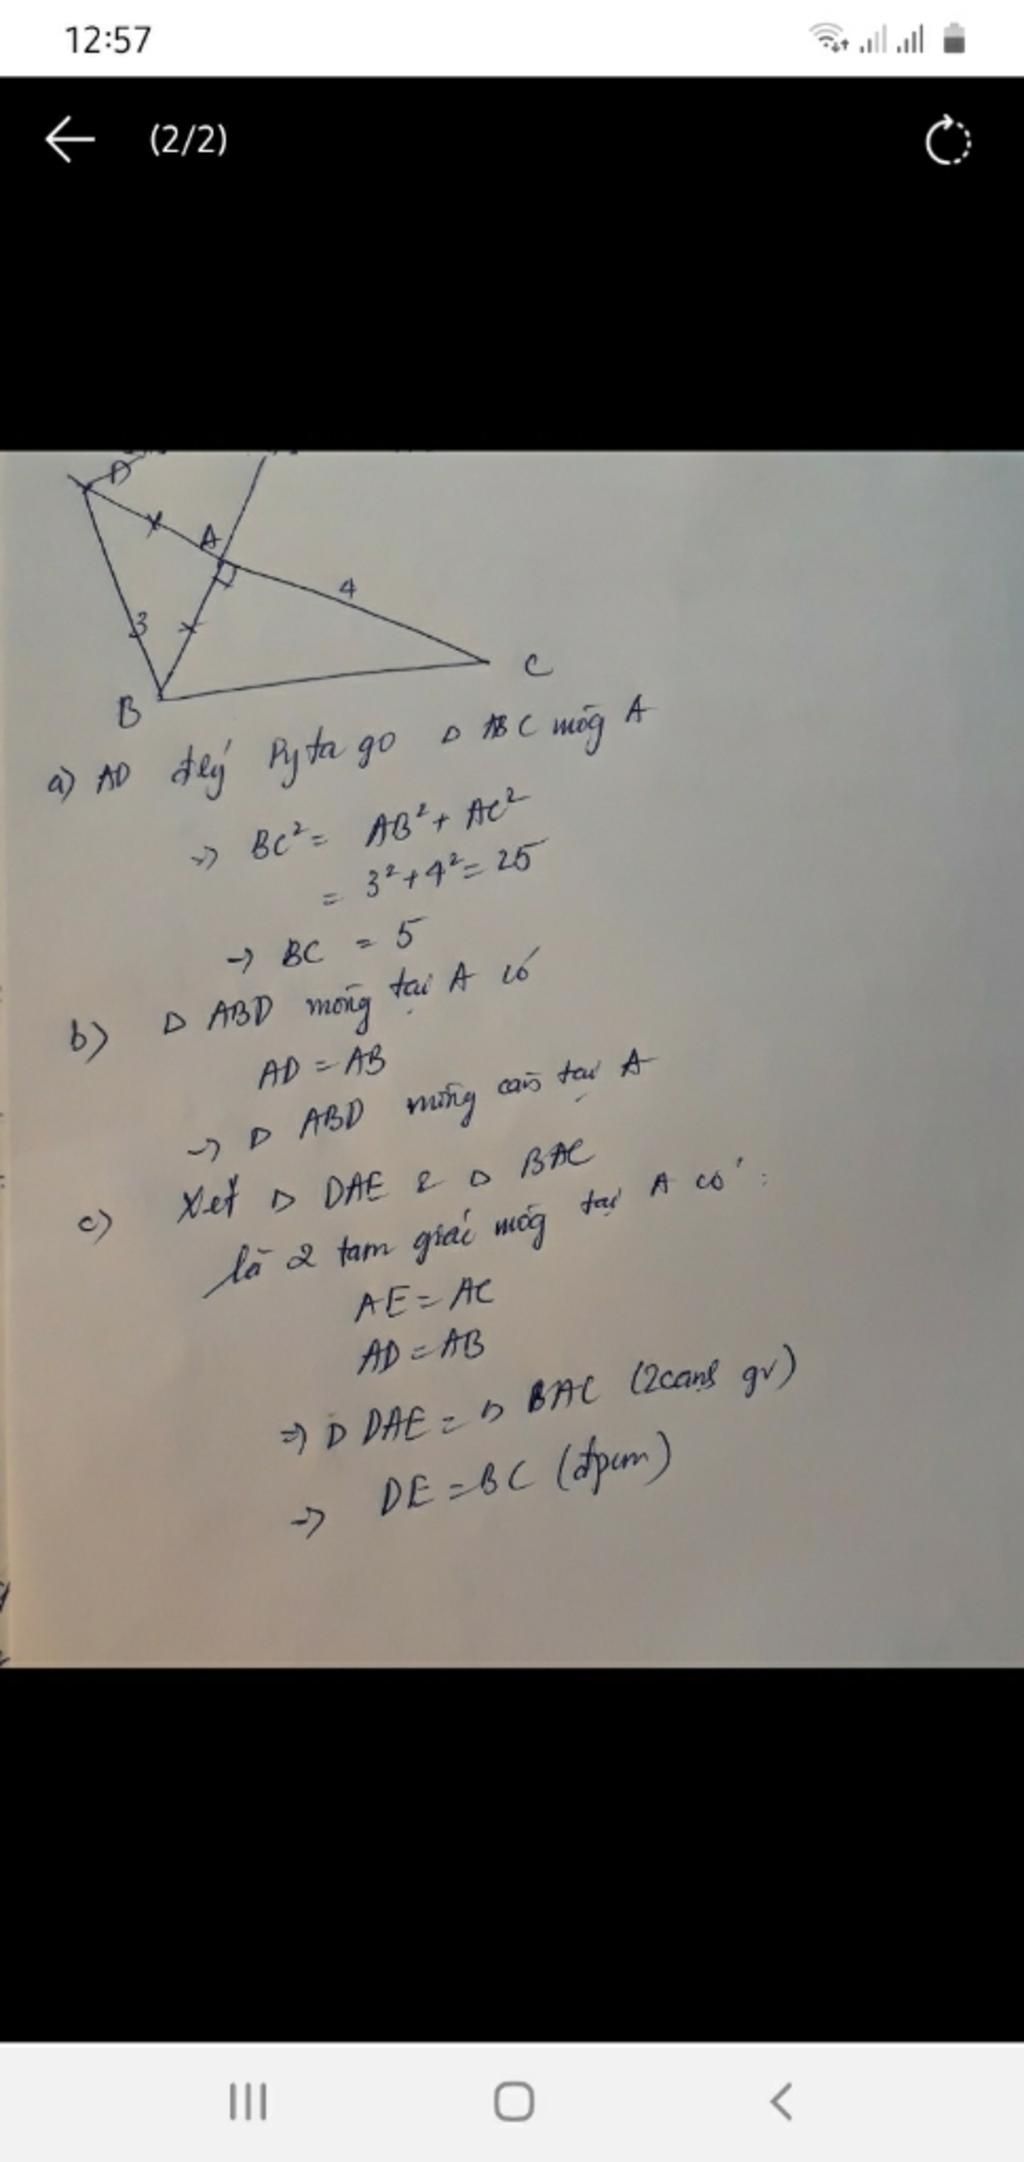 12:57
(2/2)
D
A
4
3
B
C
a) AD đlý Pytago Δ ABC vuông A
=> BC² = AB² + AC²
= 3² + 4² = 25
-> BC = 5
b) Δ ABD vuông tại A có
AD = AB
-> Δ ABD vuông cân tại A
c) Xét Δ DAE & Δ BAC
là 2 tam giác vuông tại A có :
AE = AC
AD = AB
=> Δ DAE = Δ BAC (2 cạnh gv)
-> DE = BC (đpcm)